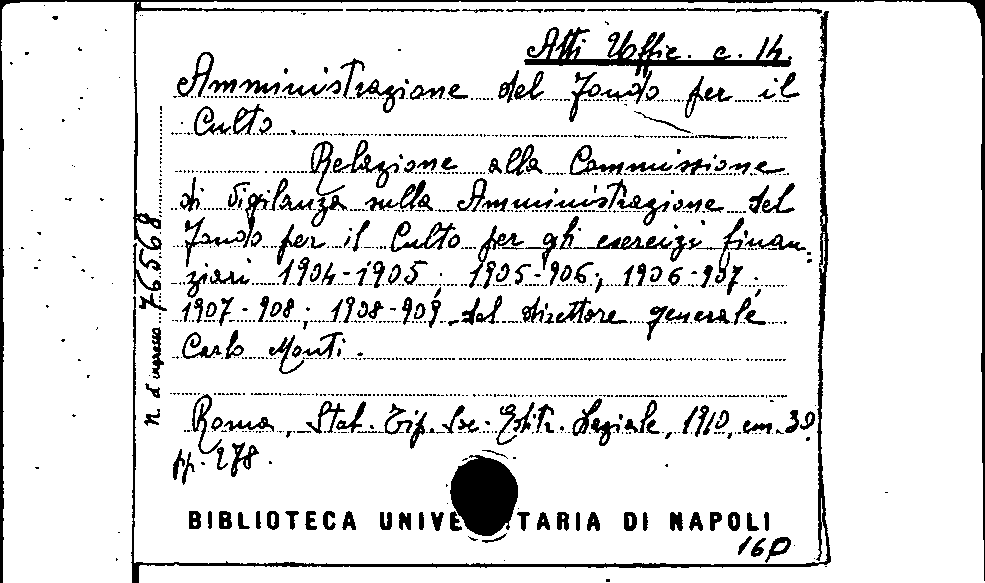 Atti Uffic. c. 14.
Amministrazione del Fondo per il
Culto.
Relazione alla Commissione
di Vigilanza sulla Amministrazione del
Fondo per il Culto per gli esercizi finan-
ziari 1904-1905; 1905-906; 1906-907;
1907-908; 1908-909 del direttore generale
Carlo Monti.
Roma, Stab. Tip. Soc. Editr. Laziale, 1910, cm. 30
pp. 278.
N. d'ingresso 76568
BIBLIOTECA UNIVE TARIA DI NAPOLI